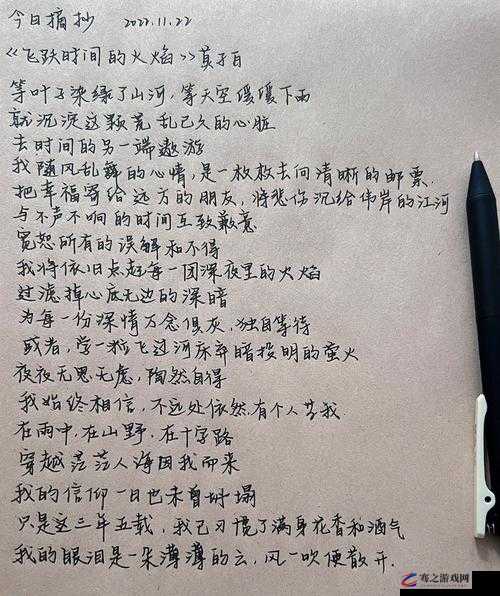 今日摘抄 2022.11.22
《飞跃时间的火焰》莫于百
等叶子染绿了山河，等天空缓缓下雨
就沉淀这颗荒乱已久的心脏
去时间的另一端遨游
我随风乱舞的心情，是一枚枚去向清晰的邮票
把幸福寄给远方的朋友，将悲伤沉给伟岸的江河
与不声不响的时间互致歉意
宽恕所有的误解和不得
我将依旧点起每一团深夜里的火焰
过滤掉心底无边的深暗
为每一份深情万念俱灰，独自等待
或者，学一粒飞过河床弃暗投明的萤火
夜夜无思无虑，陶然自得
我始终相信，不远处依然有个人等我
在雨中，在山野，在十字路
穿越茫茫人海因我而来
我的信仰一日也未曾坍塌
只是这三年五载，我已习惯了满身花香和酒气
我的眼泪是一朵薄薄的云，风一吹便散开．
骞之游戏网